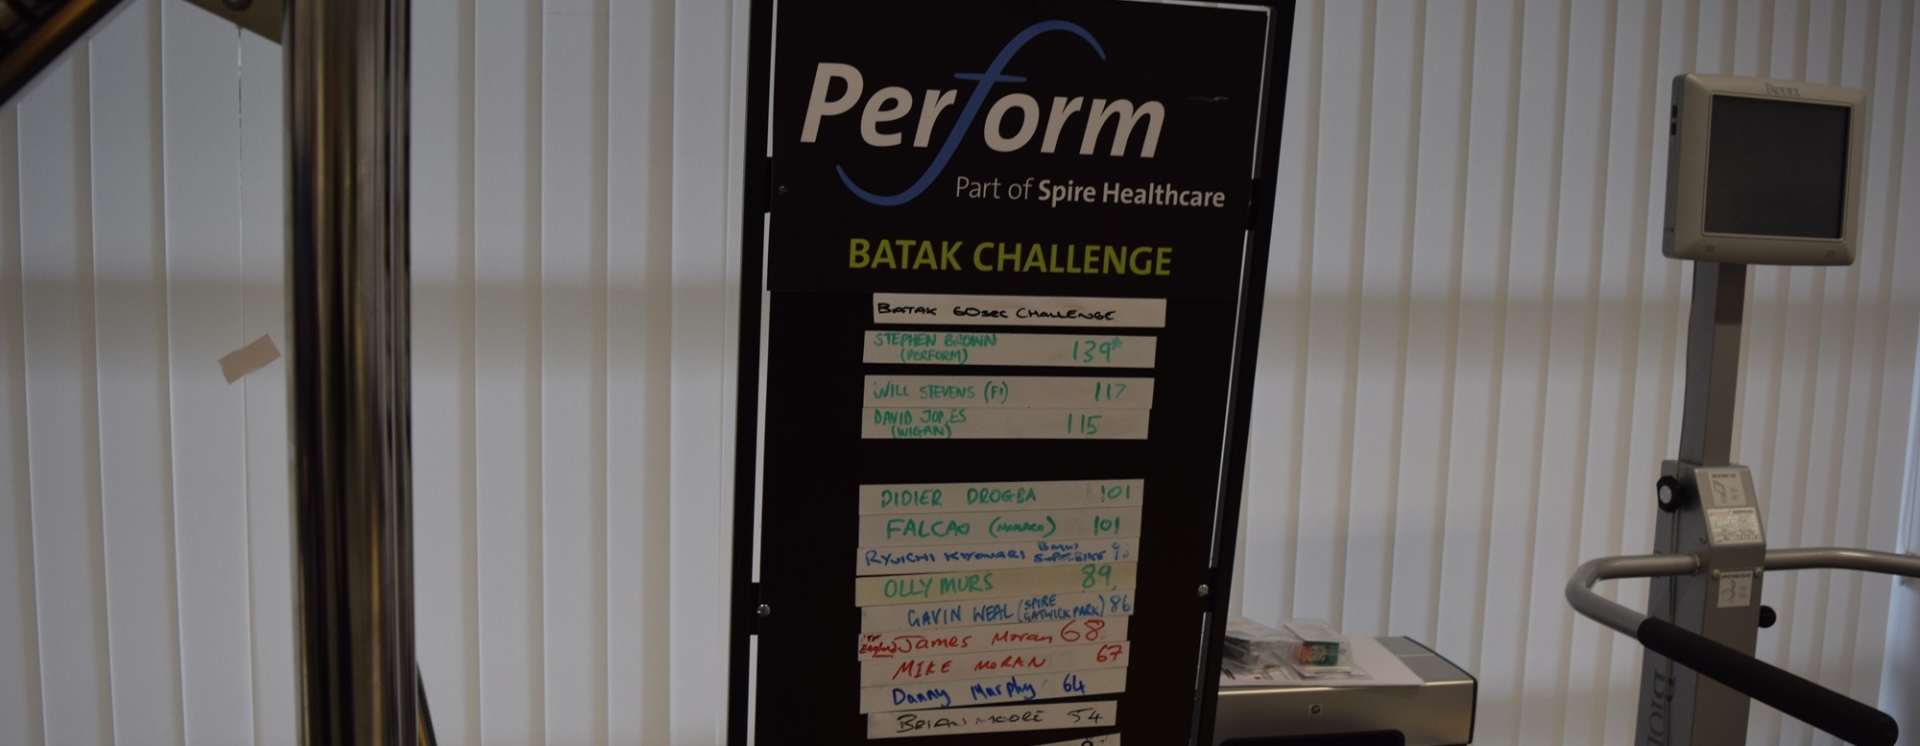 Perform
Part of Spire Healthcare
BATAK CHALLENGE
BATAK 60sec CHALLENGE
STEPHEN BROWN 139*
(PERFORM)
WILL STEVENS (F1) 117
DAVID JONES 115
(WIGAN)
DIDIER DROGBA 101
FALCAO (MONACO) 101
RYUICHI KIYONARI
OLLY MURS 89
GAVIN WEAL (SPIRE GATWICK PARK) 86
James Moran 68
MIKE MORAN 67
Danny Murphy 64
BRIAN MOORE 54
BIODEX